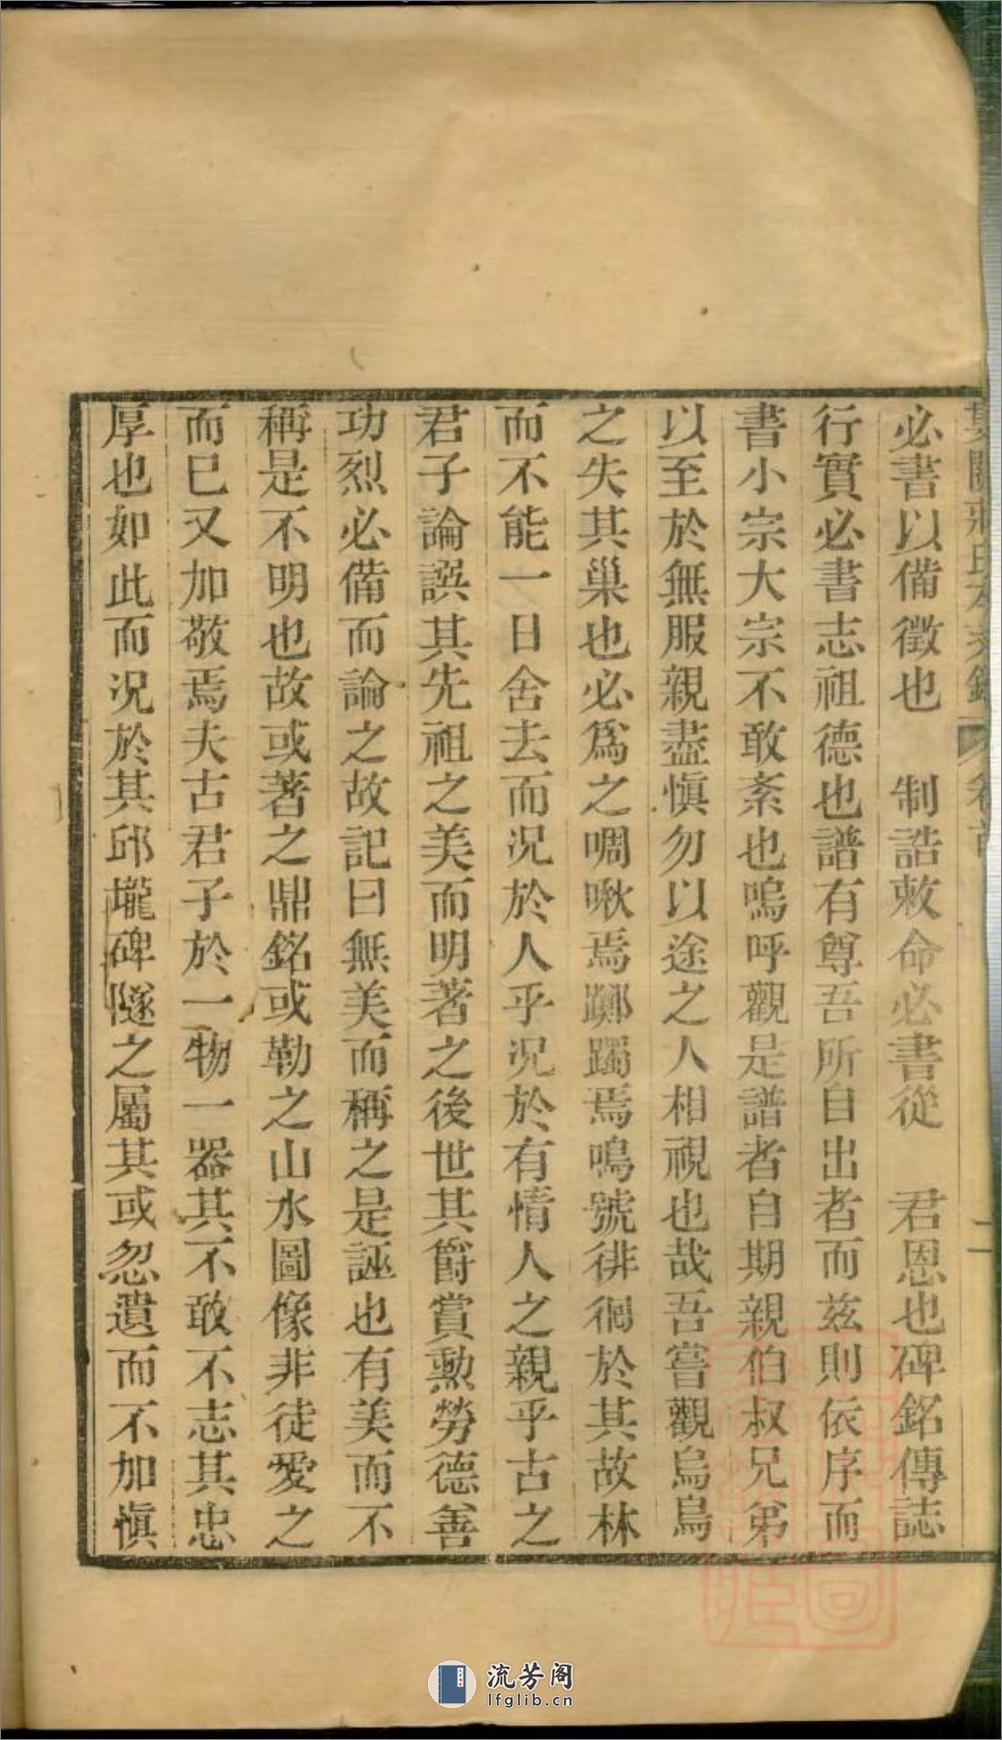 必書以備徵也　制誥敕命必書從　君恩也碑銘傳誌
行實必書志祖德也譜有尊吾所自出者而茲則依序而
書小宗大宗不敢紊也嗚呼觀是譜者自期親伯叔兄弟
以至於無服親盡愼勿以途之人相視也哉吾嘗觀烏鳥
之失其巢也必爲之啁啾焉躑躅焉鳴號徘徊於其故林
而不能一日舍去而况於人乎况於有情人之親乎古之
君子論譔其先祖之美而明著之後世其爵賞勲勞德善
功烈必備而論之故記曰無美而稱之是誣也有美而不
稱是不明也故或著之鼎銘或勒之山水圖像非徒愛之
而已又加敬焉夫古君子於一物一器其不敢不志其忠
厚也如此而况於其邱壠碑隧之屬其或忽遺而不加愼
流芳阁
lfglib.cn